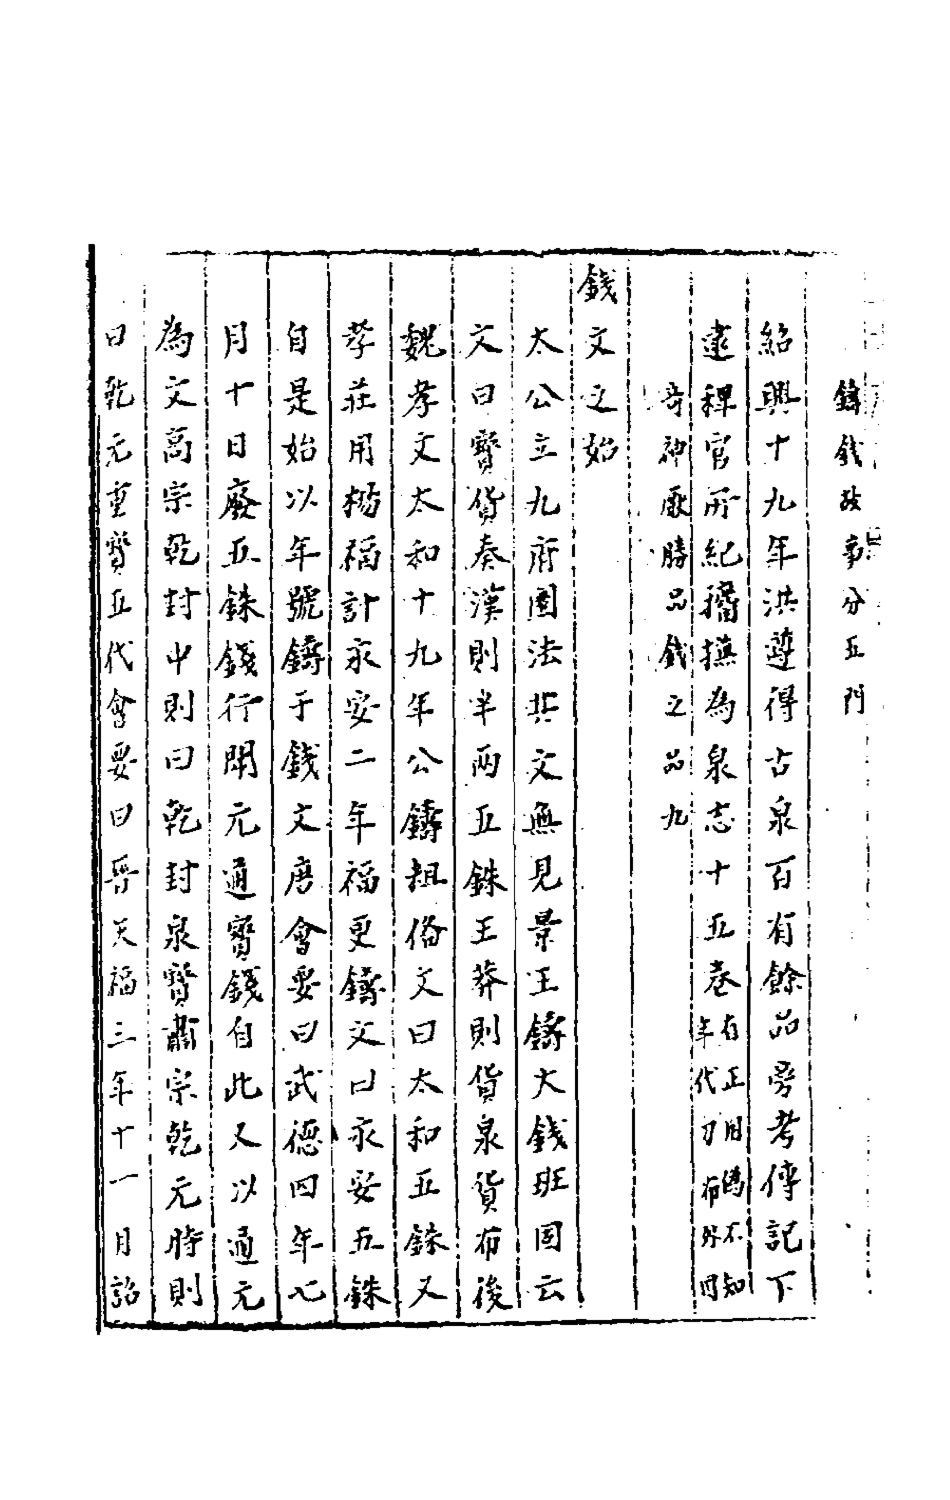 鑄錢故事分五門
紹興十九年洪遵得古泉百有餘品旁考傳記下
逮稗官所紀攟摭為泉志十五卷有正用偽不知年代刀布外國
奇神厭勝品錢之品九
錢文之始
太公立九府圜法其文無見景王鑄大錢班固云
文曰寶貨秦漢則半兩五銖王莽則貨泉貨布後
魏孝文太和十九年公鑄粗俻文曰太和五銖又
孝莊用楊福計永安二年福更鑄文曰永安五銖
自是始以年號鑄于錢文唐會要曰武德四年七
月十日廢五銖錢行開元通寳錢自此又以通元
為文高宗乾封中則曰乾封泉寳肅宗乾元時則
曰乾元重寳五代會要曰晉天福三年十一月詔